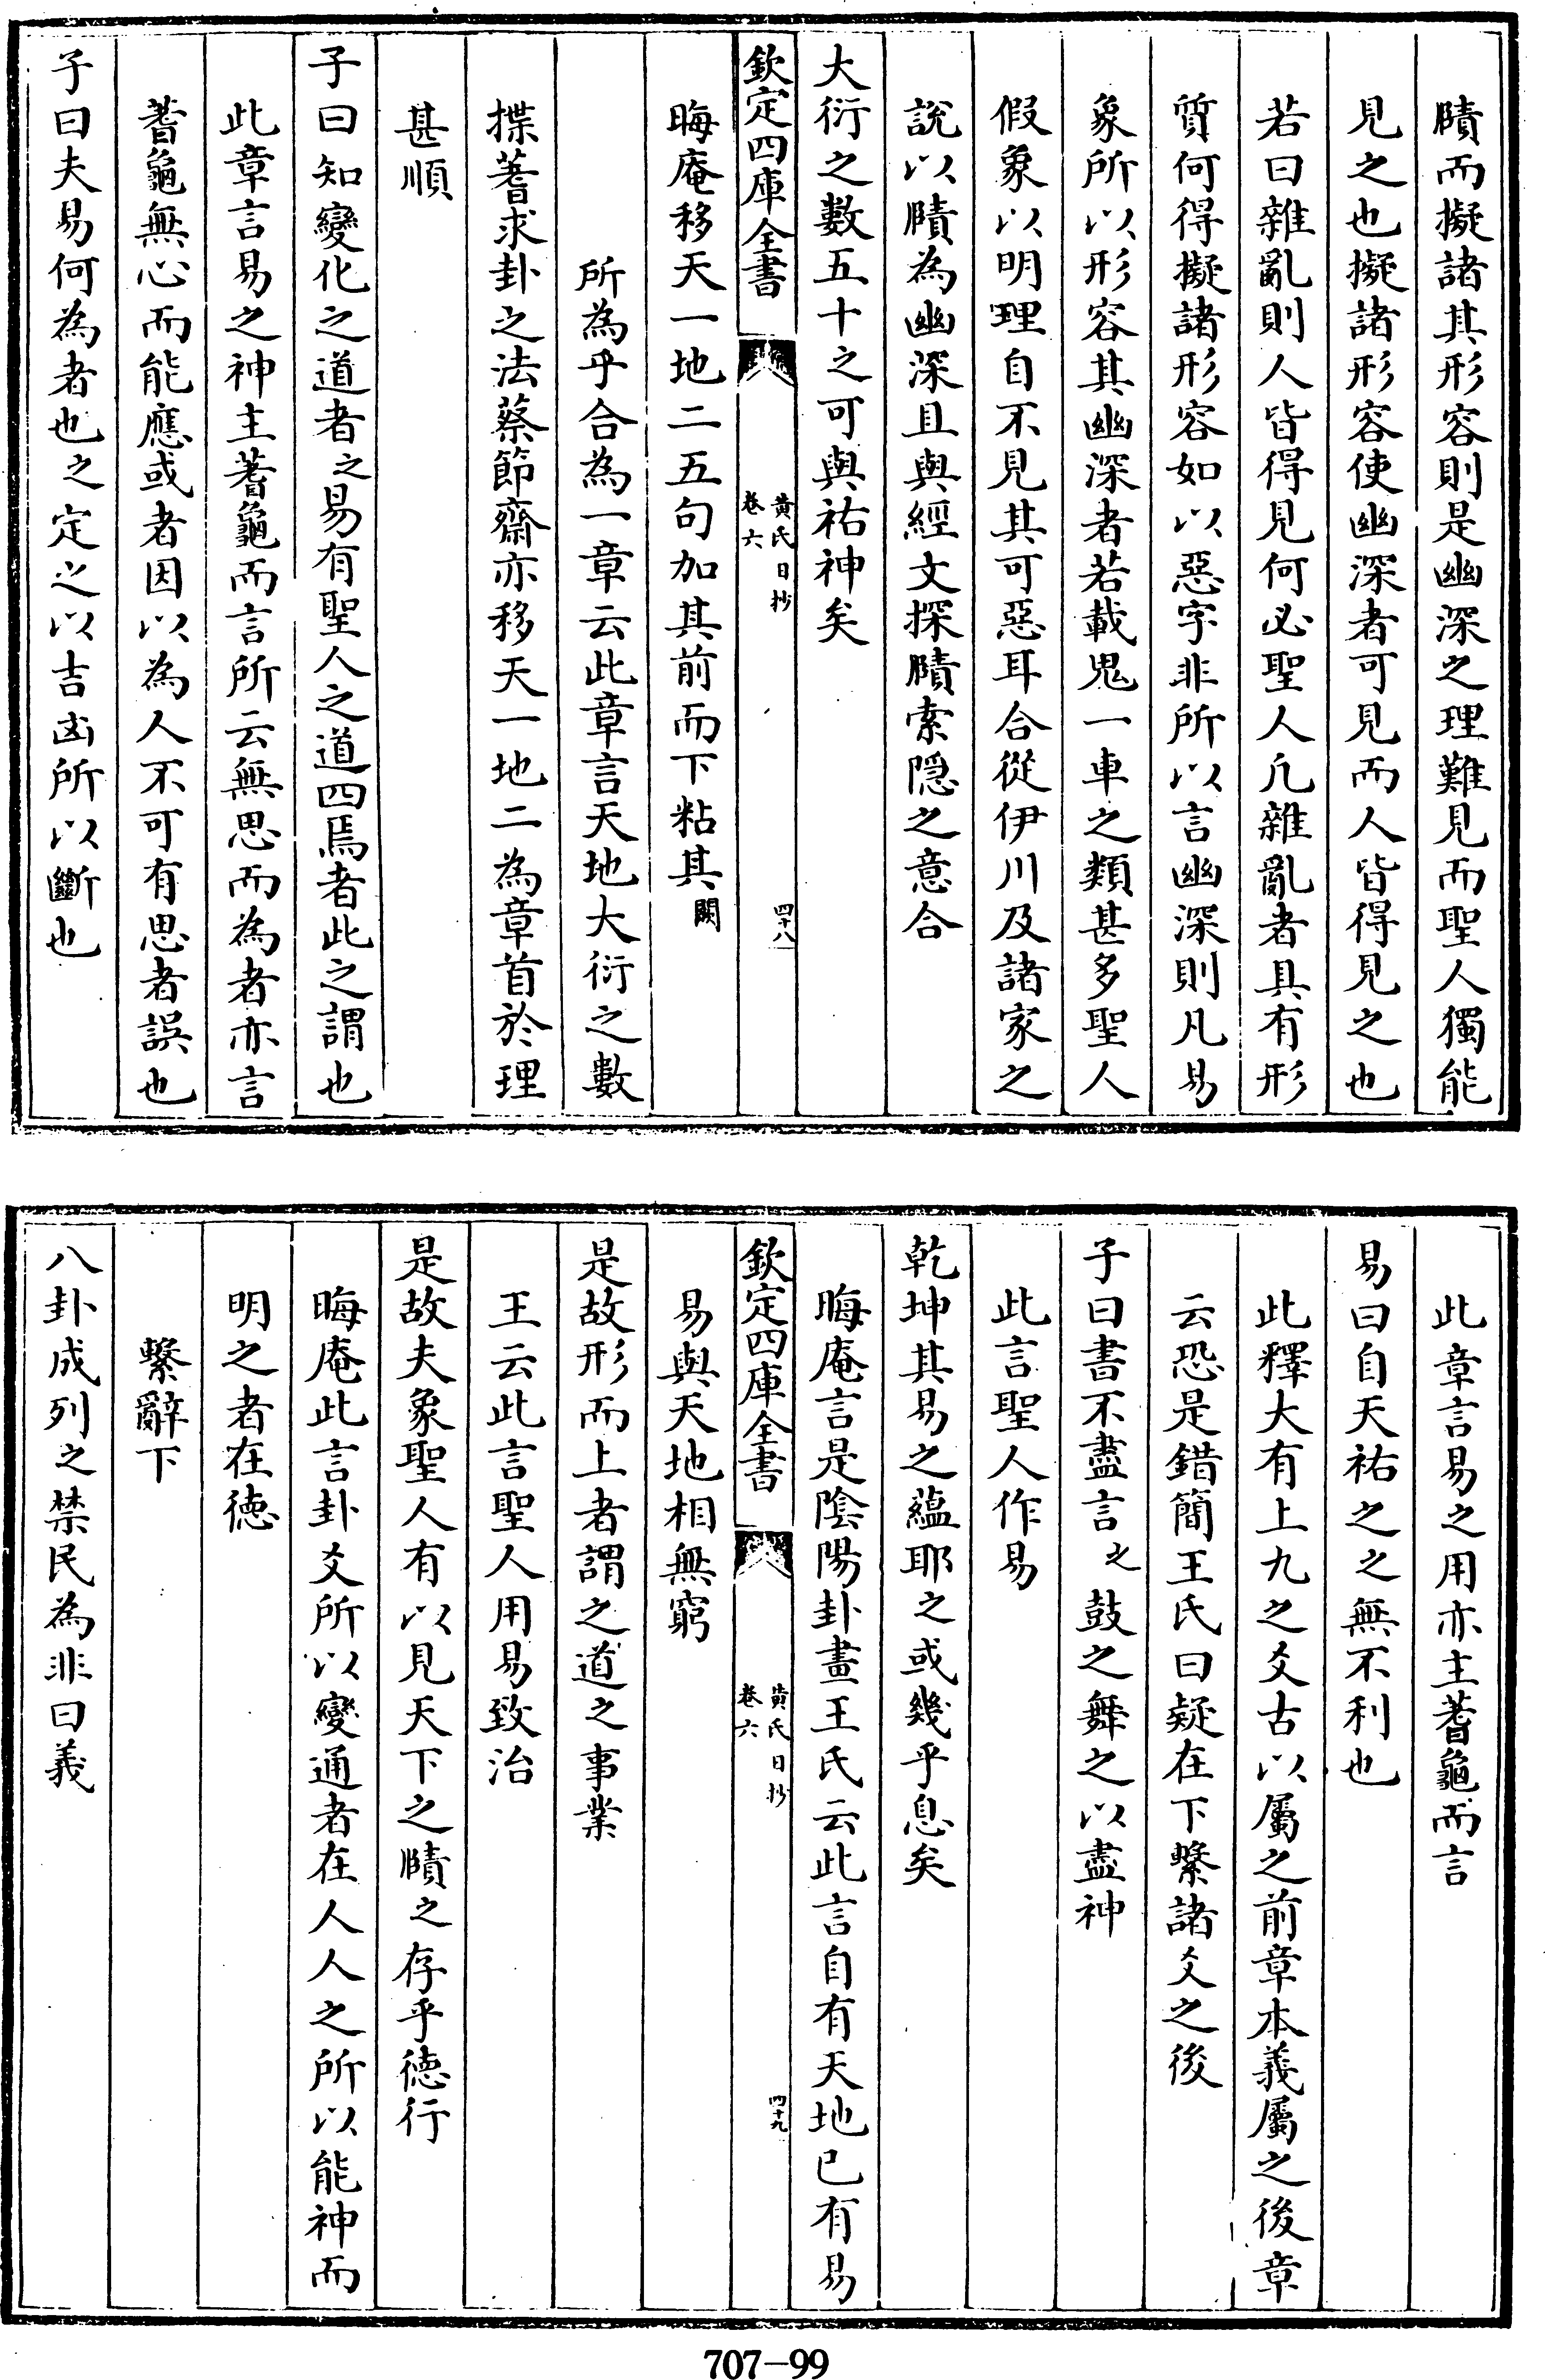 賾而擬諸其形容則是幽深之理難見而聖人獨能
見之也擬諸形容使幽深者可見而人皆得見之也
若曰雜亂則人皆得見何必聖人凡雜亂者具有形
質何得擬諸形容如以惡字非所以言幽深則凡易
象所以形容其幽深者若載鬼一車之類甚多聖人
假象以明理自不見其可惡耳合從伊川及諸家之
說以賾為幽深且與經文探賾索隠之意合
大衍之數五十之可與祐神矣
欽定四庫全書
黄氏日抄
卷六
四十八
晦庵移天一地二五句加其前而下粘其闕
所為乎合為一章云此章言天地大衍之數
揲蓍求卦之法蔡節齋亦移天一地二為章首於理
甚順
子曰知變化之道者之易有聖人之道四焉者此之謂也
此章言易之神主蓍龜而言所云無思而為者亦言
蓍龜無心而能應或者因以為人不可有思者誤也
子曰夫易何為者也之定之以吉凶所以斷也
此章言易之用亦主蓍龜而言
易曰自天祐之之無不利也
此釋大有上九之爻古以屬之前章本義屬之後章
云恐是錯簡王氏曰疑在下繫諸爻之後
子曰書不盡言之鼓之舞之以盡神
此言聖人作易
乾坤其易之蘊耶之或幾乎息矣
晦庵言是陰陽卦畫王氏云此言自有天地已有易
欽定四庫全書
黄氏日抄
卷六
四十九
易與天地相無窮
是故形而上者謂之道之事業
王云此言聖人用易致治
是故夫象聖人有以見天下之賾之存乎徳行
晦庵此言卦爻所以變通者在人人之所以能神而
明之者在徳
繫辭下
八卦成列之禁民為非曰義
707-99